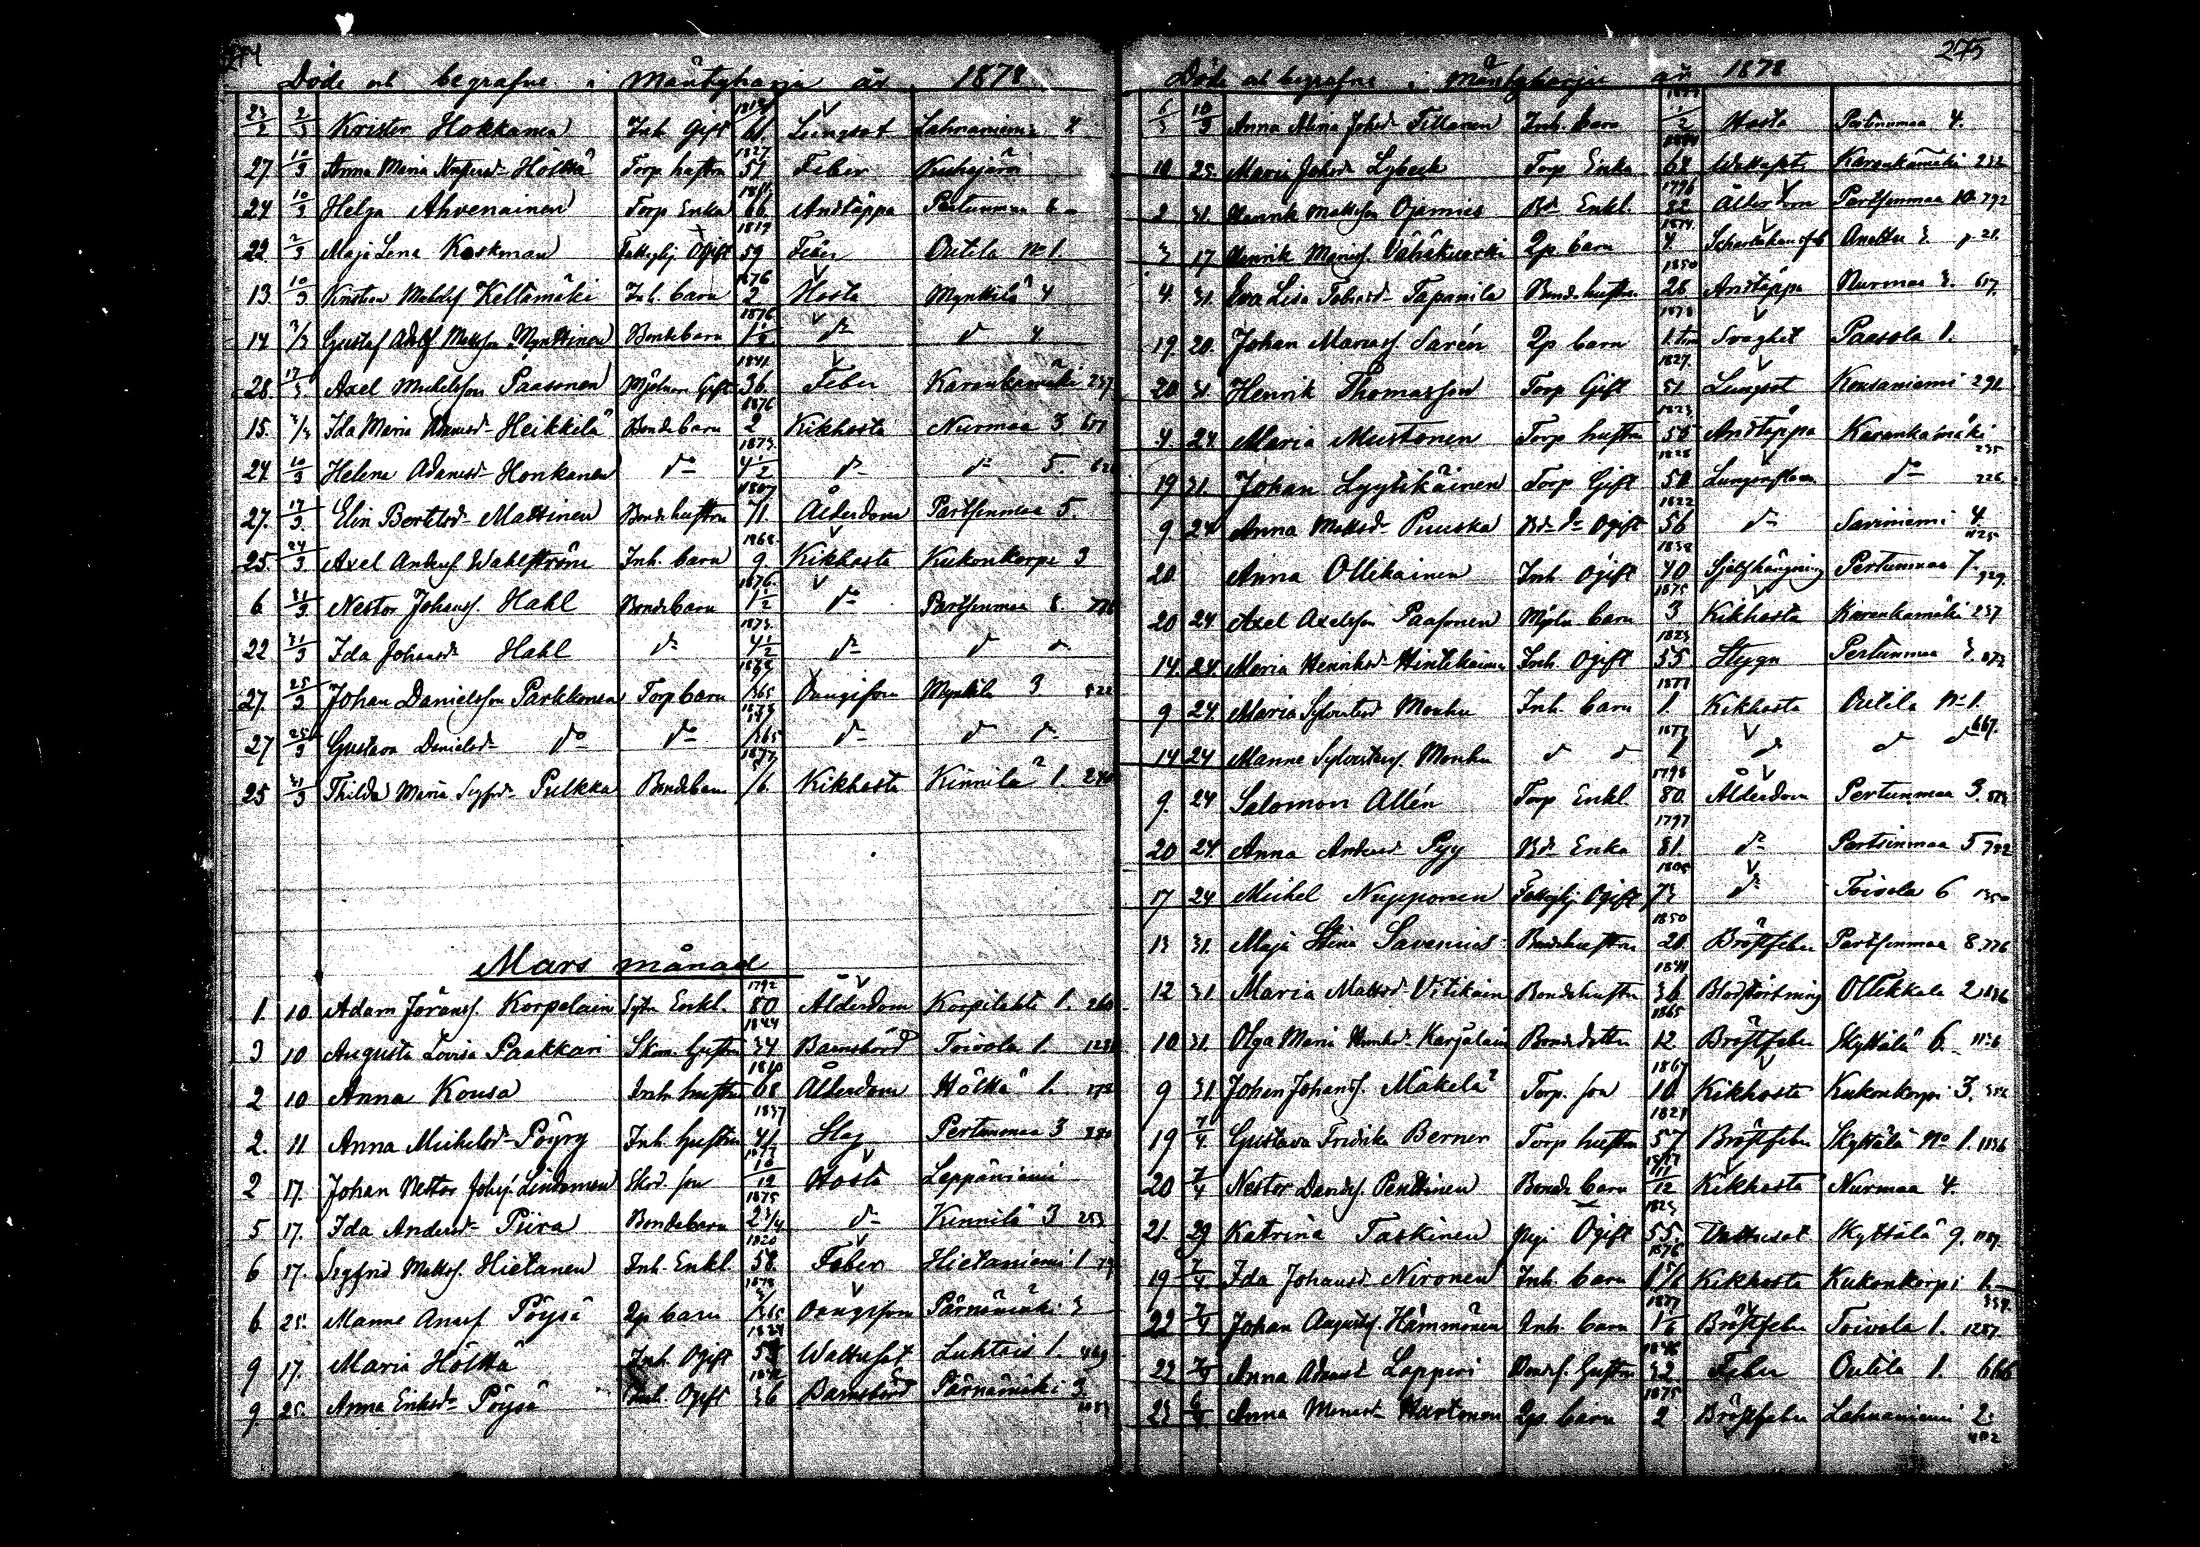 274
Döde och begrafne i Mäntyharju år 1878
23/2 2/3 Krister Hokkanen Inh. Gift 1817 61 Lungsot Lahnaniemi 4
27 10/3 Anna Maria Höltta Torp hustru 1827 51 Feber Kuhajärvi
24 10/3 Helga Ahvenainen Torp Enka 66 Andtäppa Pertunmaa 6
22 2/3 Maja Lena Koskman Fattighj Ogift 1819 59 Feber Outila No 1.
13 10/3 Kristian Keltamäki Inh. barn 1876 2 Hosta Mynttilä 4
14 Gustaf Adolf Mattsson Mynttinen Bondebarn 1876 1 1/2 do d 4
28. 17/3 Axel Michelsson Paasonen Mjölnar Gift 1841 36 Feber Karankamäki 237
15. Ida Maria Heikkilä Bondebarn 1876 2 Kikhosta Nurmaa 3
24 10/3 Helena Adamsd. Honkanen do 1873 4 1/2 do do 5.
27. 17/3 Elin Bertilsd. Mattinen Bondehustru 1807 71 Ålderdom Pärtsinmaa 5.
25. 24/3 Axel Andersf. Wahlström Inh. barn 1868 9 Kikhosta Kukonkorpi 3
6 31/3 Nestor Johansf. Hahl Bondebarn 1876 1 1/2 do Pärtsinmaa 8.
22 31/3 Ida Johansd. Hahl do 1873 4 1/2 do d
27. 25/3 Johan Danielsson Parkkonen Torpbarn 1878 /365 Oangifven Mynttilä 3
27 25/3 Gustava Danielsd. do do 1878 /365 do d do
25 31/3 Thilda Maria Sigfrd. Pulkka Bondebarn 1877 /6. Kikhosta Kinnilä 1. 240
Mars månad
1. 10. Adam Göransf. Korpelain Sytn. Enkl. 1792 80 Ålderdom Korpilahti 1.
3 10 Augusta Lovisa Paakkari Skom. hustru 1844 34 Barnsbörd Toivola 1.
2 10 Anna Kousa Inh. hustru 1810 68 Ålderdom Höltta 1.
2. 11 Anna Michelsd. Pöyry Inh. hustru 1837 41. Slag Pertunmaa 3
2 17. Johan Nestor Johsf. Lindeman Skod. son 1877 10/12 Hosta Leppäniemi
5 17. Ida Andersd. Piira Bondebarn 1875 2 3/4 do Kinnilä 3 253
6 17. Sigfrid Mattsf. Hietanen Inh. Enkl. 1820 58. Feber Hietaniemi 1
6 25. Manne Pöysä Lp barn 1878 /365 Oangifven Pärnämäki 3
9 17. Maria Höltta Inh. Ogift 1824 Wattusot Luhtais 1.
9 25. Anna Eriksd. Pöysä Inh. Ogift 36 Barnsbörd Pärnämäki 3
275
Döde och begrafne i Mäntyharju år 1878
10/3 Anna Mina Johsd. Tillanen Inh. barn 1877 1/2 Hosta Pertunmaa 4.
10 25. Maria Johsd. Lybeck Torp Enka 64 Wattusot Karankamäki 232
2 31. Henrik Mattsson Ojamies Bd Enkl. 1796 82 Ålderdom Pärtsinmaa 10 792
3 17 Henrik Vähäkuoski Lp. barn 1874 4.
4. 31. Eva Lisa Tapanila Bondehustru 1850 28 Andtäppa Nurmaa 3. 617.
19. 20. Johan Sarén Lp barn 1878 1 Svaghet Paasola 1.
20. 31 Henrik Thomasson Torp Gift 1827. 51 Lungsot Kousaniemi 292
4. 24 Maria Mustonen Torp hustru 1823 55 Andtäppa Karankamäki 235
19 31. Johan Lyytikäinen Torp Gift 1828 50 Lunginflam do 226
9 24 Anna Mattsd. Puuska Bd. do Ogift 1822 56 do Saviniemi 4
20. Anna Ollikainen Inh Ogift 1838 40 Sjelfhängning Pertunmaa 7.
20 24 Axel Axelsson Paasonen Mjöln. barn 1875 3 Kikhosta Karankamäki 237
14. 24. Maria Henriksd. Hintikainen Inh. Ogift 1823 55 Stygn Pertunmaa 3.
9 24. Maria Sylvestersd. Monku Inh. barn 1877 1. Kikhosta Outila No 1. 667.
14 24 Manne Sylvestersf. Monku d d 1877 1 d d d
9. 24 Salomon Allén Torp Enkl. 1798 80. Ålderdom Pertunmaa 3.
20 24. Anna Andersd. Pyy Bd. Enka 1797 81. do Pertsinmaa 5 782
17 24 Michel Nupponen Fattighj. Ogift 1805 73 do Toivola 6
13 31. Maja Stina Savenius Bondehustru 1850 28 Bröstfeber Pärtsinmaa 8. 776
12 31 Maria Mattsd. Vitikain Bondehustru 36 Blodstörtning Ollikkala 2
10 31. Olga Maria Karjalain Bondedotter 1865 12 Bröstfeber Skyttälä 6.
9 31. Johan Johansf. Mäkelä Torp. son 1867 10 Kikhosta Kukonkorpi 3.
19 7/4 Gustava Fredrika Berner Torp hustru 1821 57 Bröstfeber Skyttälä No 1.
20 7/4 Nestor Davidsf. Penttinen Bonde barn 1877 11/12 Kikhosta Nurmaa 4.
21. 29 Katrina Taskinen Ogift 1823 55. Wattusot Skyttälä 9.
19 7/4 Ida Johansd. Nironen Inh. barn 1876 1 5/6 Kikhosta Kukonkorpi 1.
22 7/4 Johan Augustsf. Hämmönen Inh. barn 1877 Bröstfeber Toivola 1. 1287.
23 7/4 Anna Adamsd. Lapperi Bondes. hustru 1846 32 Feber Outila 1. 666
23 Anna Hartonen Lp. barn 1875 2 Bröstfeber Lahnaniemi 2